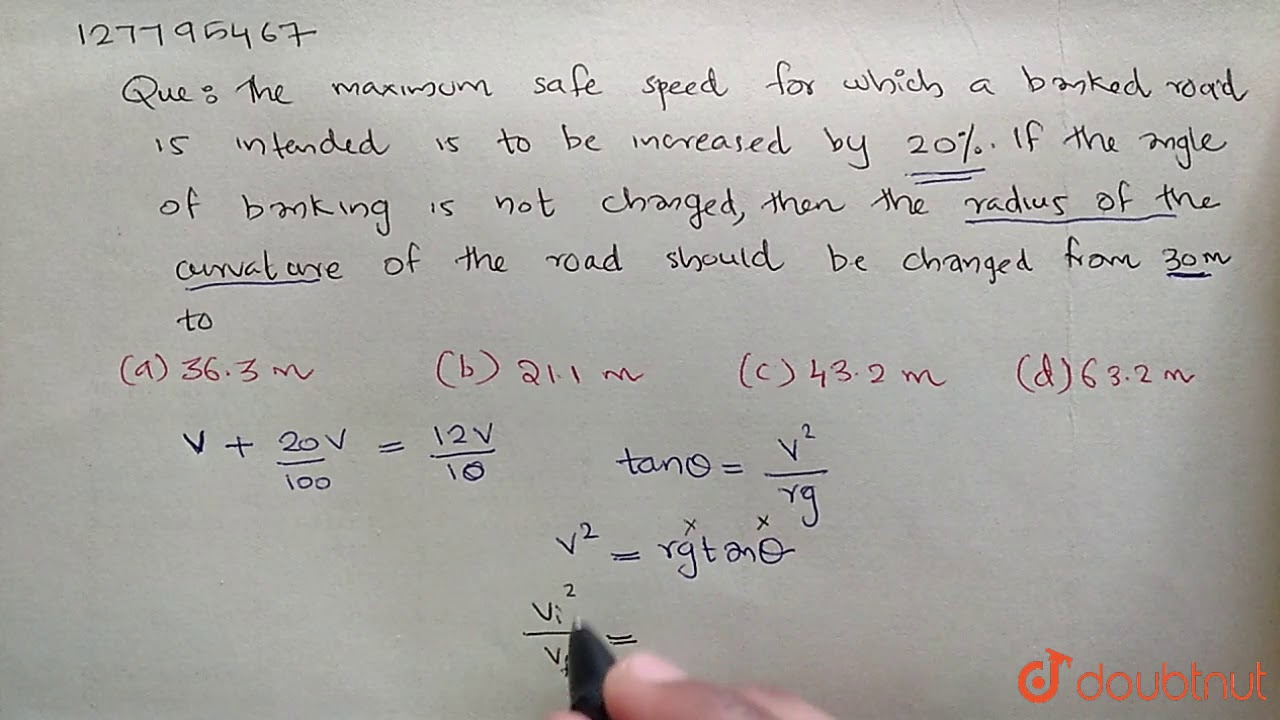 127795467
Que: the maximum safe speed for which a banked road
is intended is to be increased by 20%. If the angle
of banking is not changed, then the radius of the
curvature of the road should be changed from 30m
to
(a) 36.3 m (b) 21.1 m (c) 43.2 m (d) 63.2 m
V + 20V/100 = 12V/10 tanθ = V²/rg
V² = rg tanθ
x x
Vi²/Vf =
doubtnut